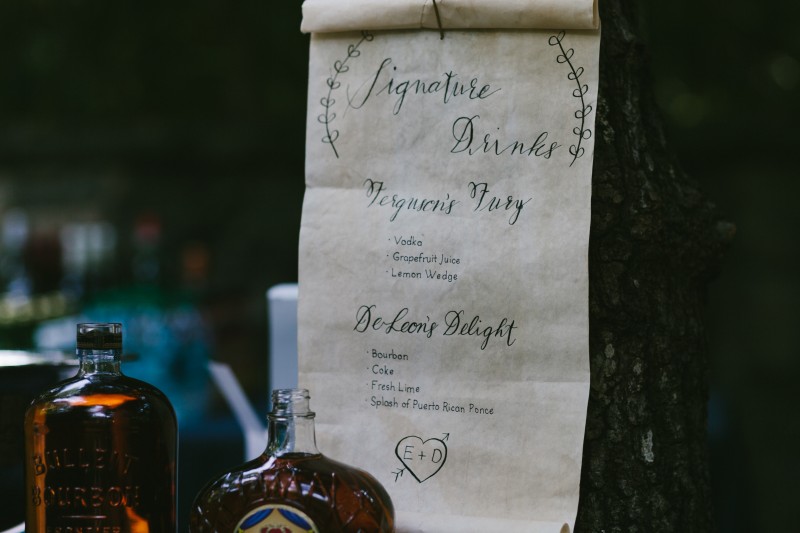 Signature
Drinks
Ferguson's Fury
· Vodka
· Grapefruit Juice
· Lemon Wedge
De Leon's Delight
· Bourbon
· Coke
· Fresh Lime
· Splash of Puerto Rican Ponce
E + D
BULLEIT
BOURBON
FRONTIER